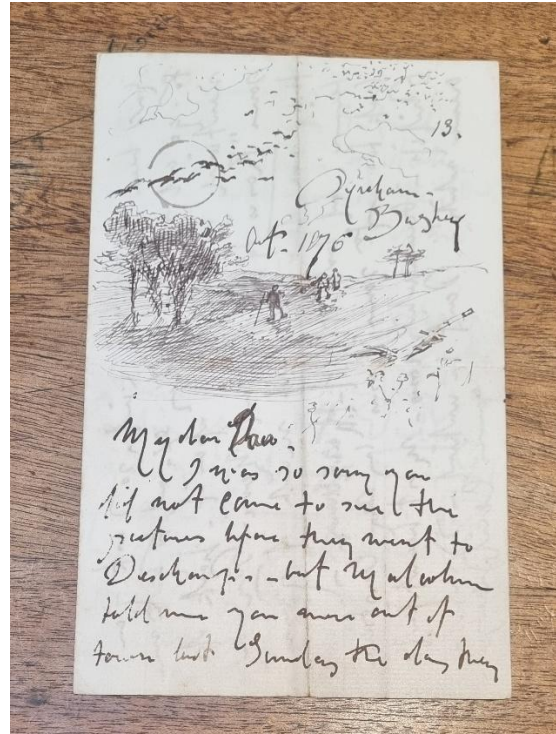 13.
Pyreham -
Bushey
Oct. 1876
My dear
I was so sorry you
did not come to see the
pictures before they went to
Deschamps - but Malcolm
told me you were out of
town last Sunday the day they